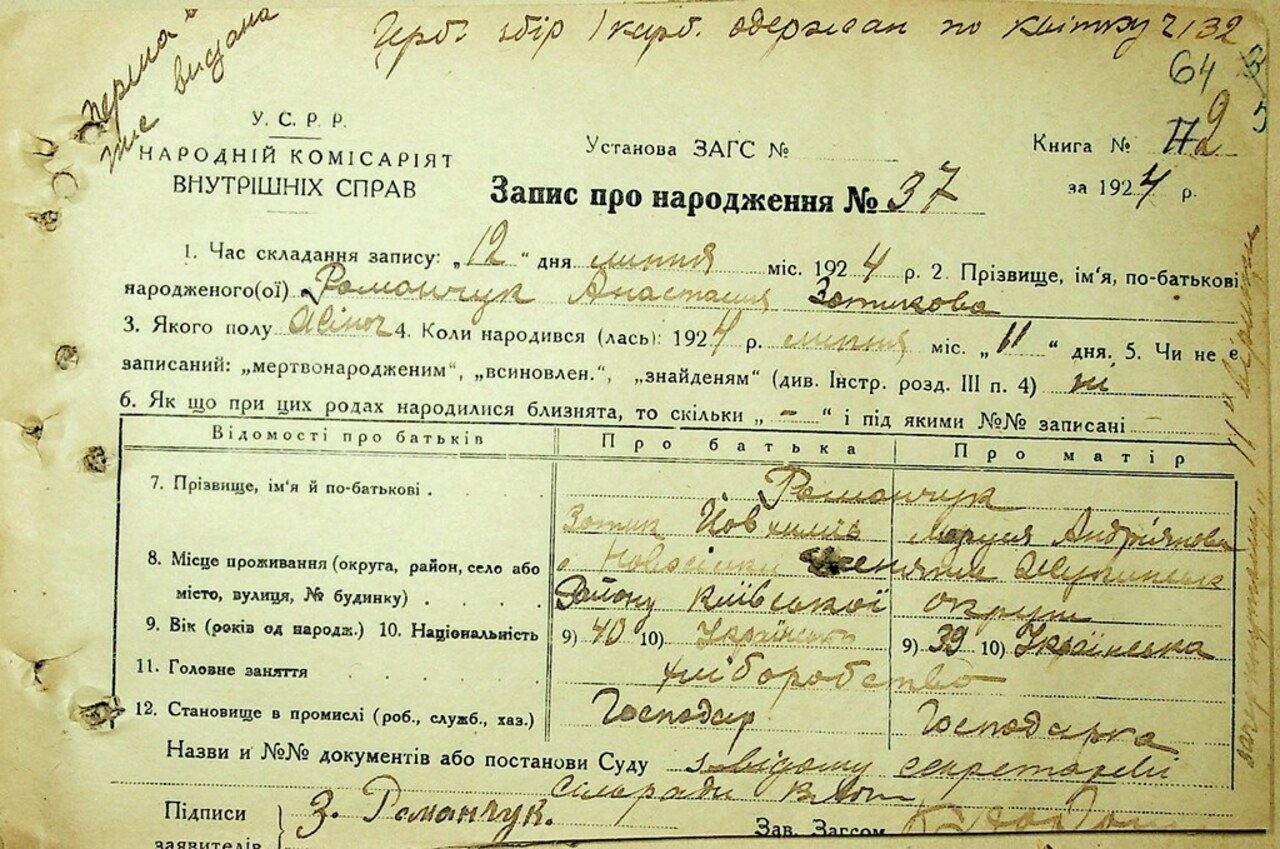 Герб. збір 1 карб. одержан по квітку ч 132
64
"перша"
вже видана
У. С. Р. Р.
НАРОДНІЙ КОМІСАРІЯТ
ВНУТРІШНІХ СПРАВ
Установа ЗАГС №
Книга № 2
Запис про народження № 37
за 1924 р.
1. Час складання запису: „12“ дня липня міс. 1924 р. 2. Прізвище, ім'я, по-батькові
народженого(ої) Романчук Анастасия Зотикова
3. Якого полу жіноч 4. Коли народився (лась): 1924 р. липня міс. „11“ дня. 5. Чи не є
записаний: „мертвонародженим“, „всиновлен.“, „знайденям“ (див. Інстр. розд. III п. 4) ні
6. Як що при цих родах народилися близнята, то скільки „ – “ і під якими №№ записані –
Відомості про батьків Про батька Про матір
7. Прізвище, ім'я й по-батькові . Романчук
Зотик Маруся Андріянова
8. Місце проживання (округа, район, село або
місто, вулиця, № будинку) . Району Київської округи
9. Вік (років од народж.) 10. Національність 9) 40 10) Українськ 9) 39 10) Українська
11. Головне заняття хліборобство
12. Становище в промислі (роб., служб., хаз.) Господар Господарка
Назви и №№ документів або постанови Суду з відому секретареві
Сільради
Підписи
заявителів З. Романчук.
Зав. Загсом